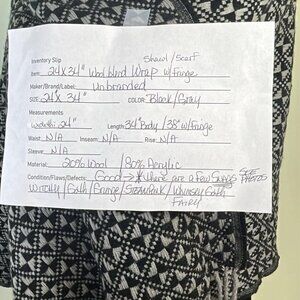 Inventory Slip
Shawl / Scarf
Item: 24 X 34" Wool blend Wrap w/ Fringe
Maker/Brand/Label: Unbranded
SIZE: 24" X 34" COLOR: Black / Gray
Measurements
Width: 24" Length: 34" Body / 38" w/ Fringe
Waist: N/A Inseam: N/A Rise: N/A
Sleeve: N/A
Material: 20% Wool / 80% Acrylic
Condition/Flaws/Defects: Good → there are a few Snags SEE PHOTOS
Witchy / Goth / Grunge / Steampunk / Whimsy Goth
FAIRY